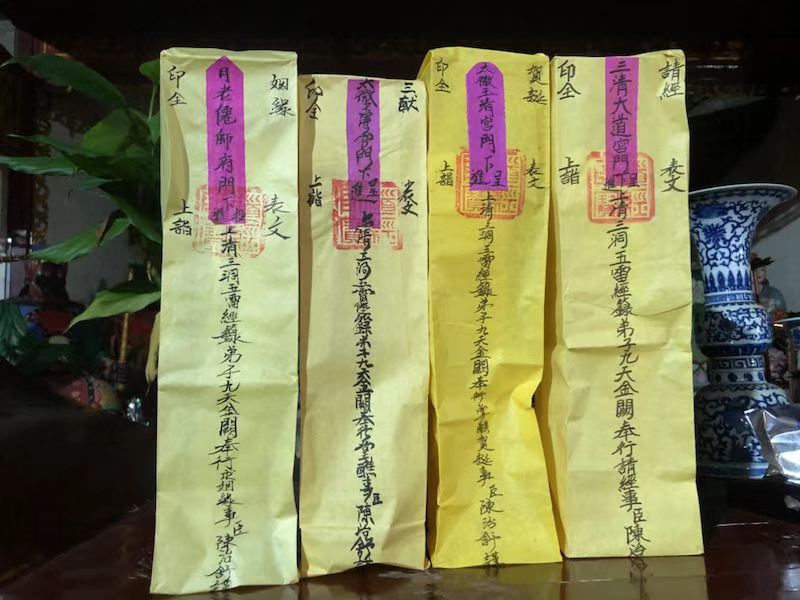 請經 表文
三清大道宮門下
進呈
上清三洞五雷經籙弟子九天金闕奉行請經事臣陳治
印全 上詣
賀誕 表文
太微玉清宮門下
進呈
上清三洞五雷經籙弟子九天金闕奉行賀誕事臣陳治舒謹
印全 上詣
三獻 表文
太微玉清宮門下
進呈
上清三洞五雷經籙弟子九天金闕奉行醮事臣陳治舒
印全 上詣
姻緣 表文
月老僊師府門下
進投
上清三洞五雷經籙弟子九天金闕奉行求姻緣事臣陳治舒謹
印全 上詣